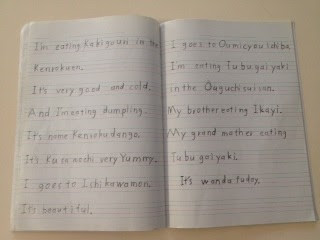 I'm eating Kakigouri in the
Kenrokuen.
It's very good and cold.
And I'm eating dumpling.
It's name Kenrokudango.
It's Kusamochi very Yummy.
I goes to Ishikawamon.
It's beautiful.
I goes to Oumicyou idiba.
I'm eating Tubugaiyaki
in the Ouguchisuison.
My brother eating Ikayi.
My grand mother eating
Tubugaiyaki.
It's wanda fuday.